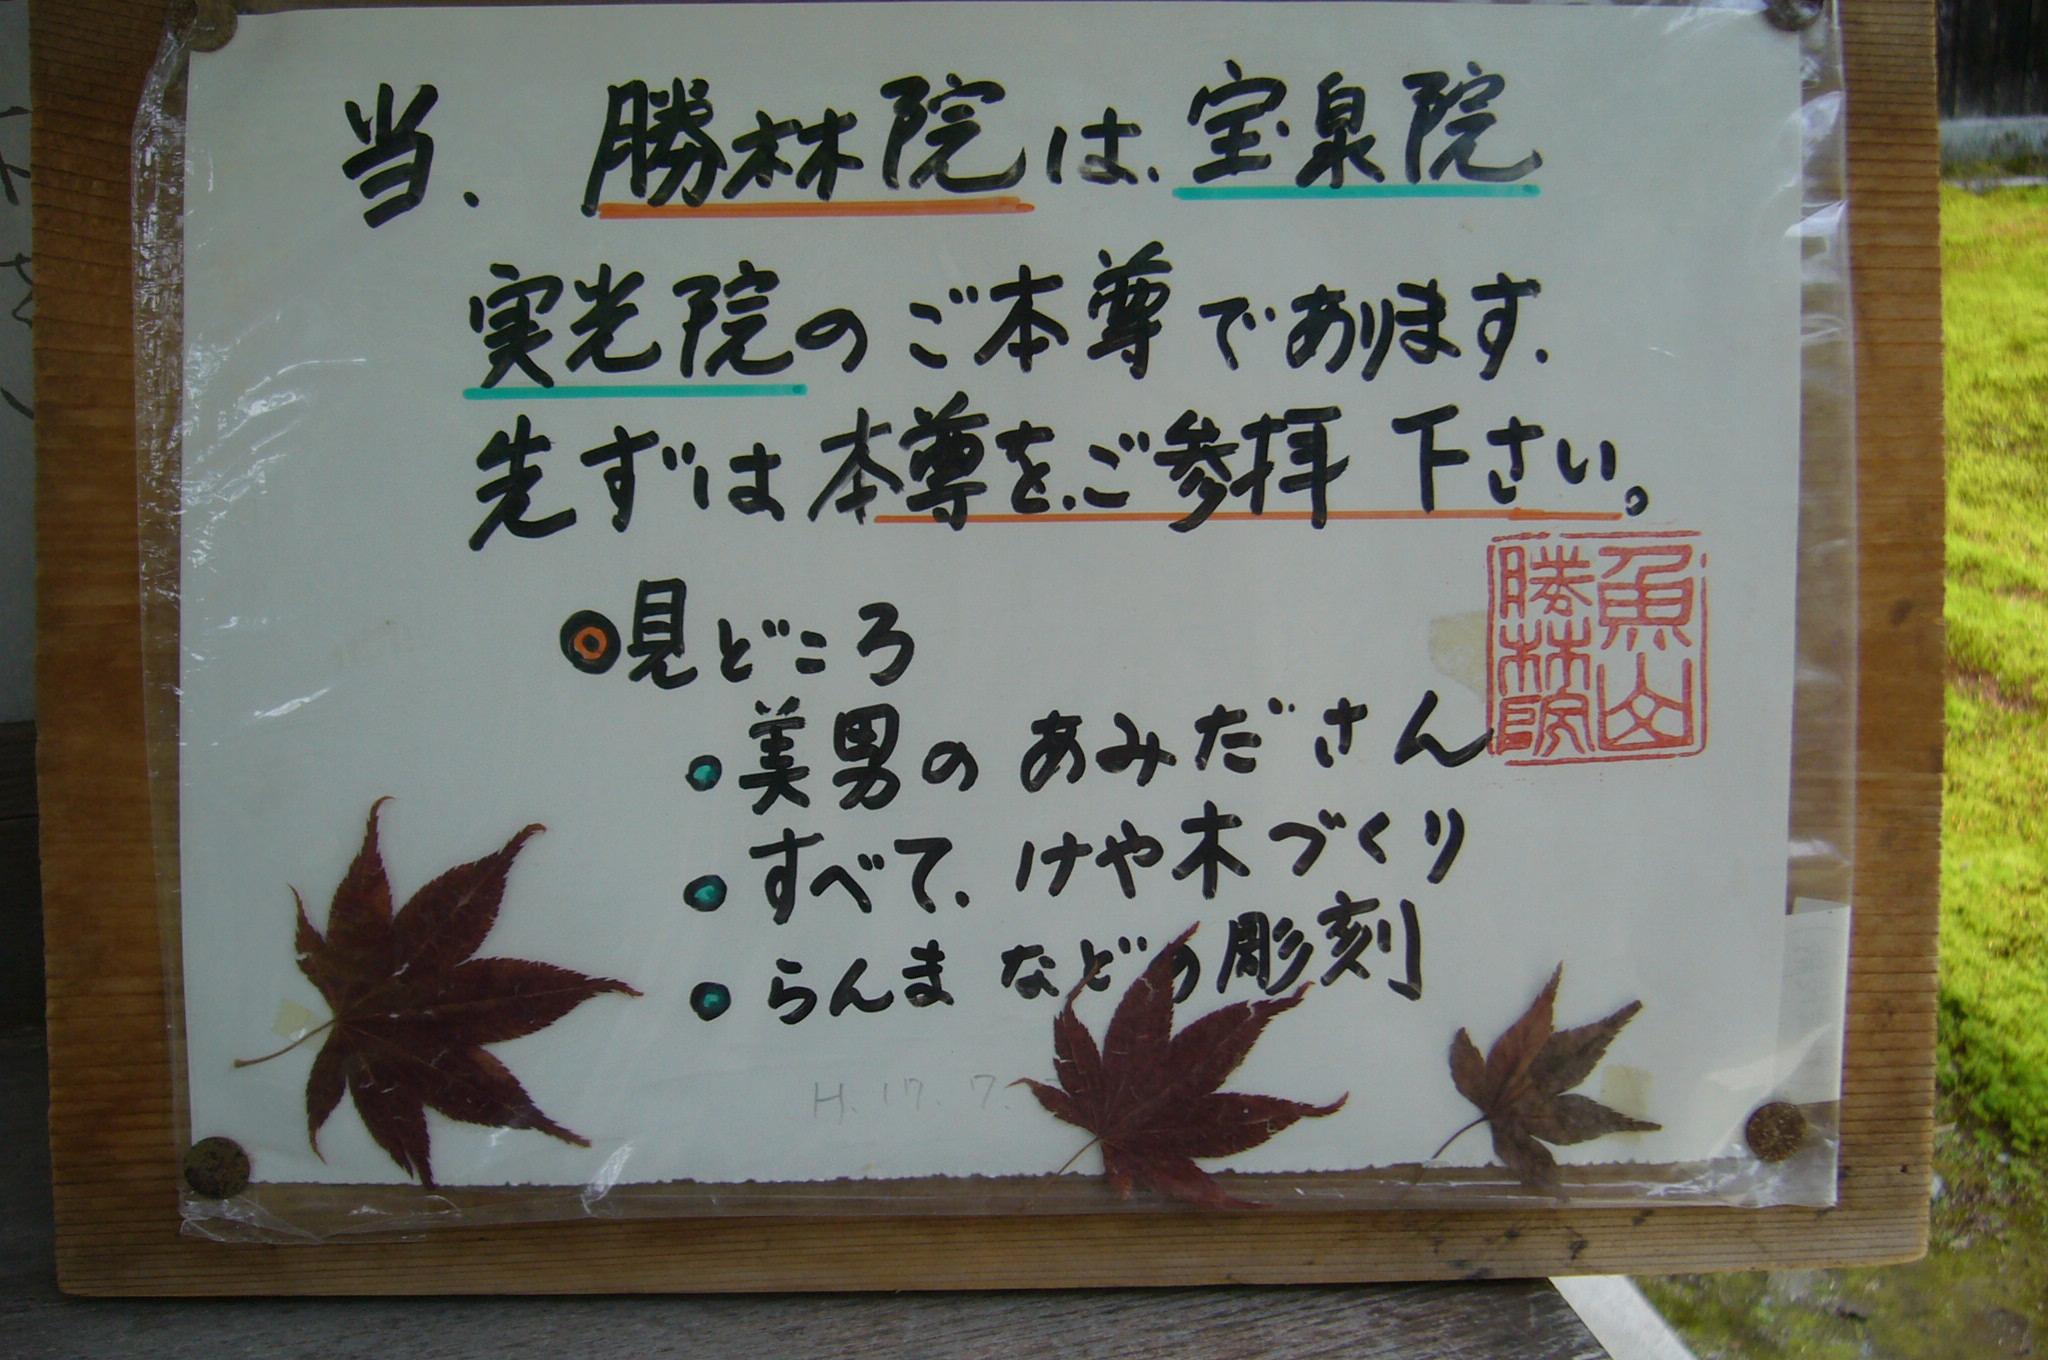 当、勝林院は、宝泉院
実光院のご本尊であります。
先ずは本尊を、ご参拝下さい。
魚山
勝林院
見どころ
・美男のあみださん
・すべて、けや木づくり
・らんまなどの彫刻
H.17.7.